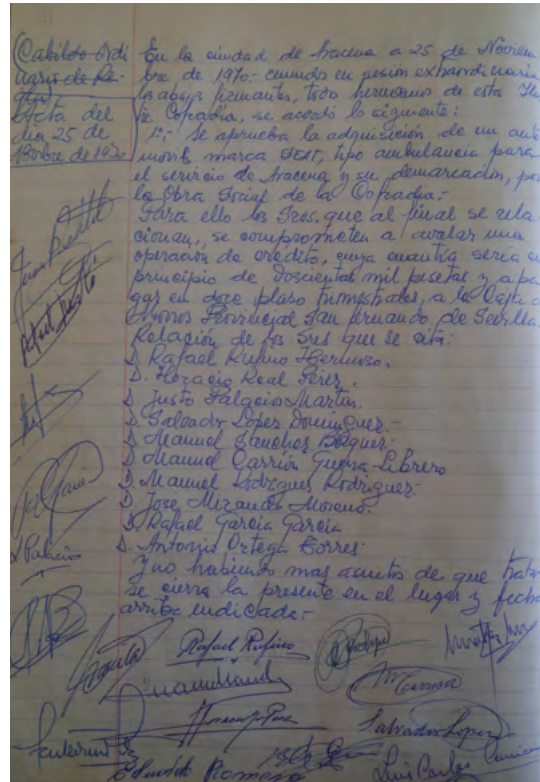 (Cabildo Ordi
nario de Re-
gla)
Acta del
dia 25 de
Novbre de 1970
En la ciudad de Aracena a 25 de Noviem
bre de 1970.- reunidos en sesión extraordinaria
los abajo firmantes, todo hermanos de esta Ilt
tre Cofradia, se acordó lo siguiente:
1º;- Se aprueba la adquisición de un auto
movil marca SEAT, tipo ambulancia para
el servicio de Aracena y su demarcación, por
la Obra Social de la Cofradia.-
Para ello los Sres. que al final se rela
cionan, se comprometen a avalar una
operación de crédito, cuya cuantia seria en
principio de doscientas mil pesetas y a pa
gar en doce plaso trimestrales, a la Caja de
Ahorros Provincial San Fernando de Sevilla.
Relación de los Sres que se cita:
D. Rafael Rufino Hermoso.
D. Horacio Real Pérez.
D. Justo Palacio Martin.
D. Salvador López Dominguez.-
D. Manuel Sanchez Báguez.-
D. Manuel Carrión Guerra-Librero
D. Manuel Rodrigues Rodriguez.-
D. José Miranda Moreno.
D. Rafael Garcia Garcia
D. Antonio Ortega Torres.
Y no habiendo mas asuntos de que trata
se cierra la presente en el lugar y fecha
arriba indicada.-
Palacio
Rafael Rufino
Salvador Lopez
Eduardo Romero
Luis Carlos